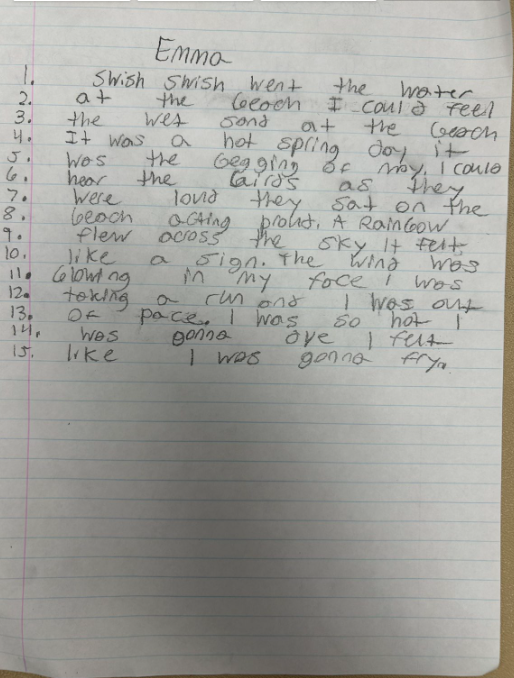 Emma
1. Swish Swish went the water
2. at the beach I could feel
3. the wet sand at the beach
4. It was a hot spring day it
5. was the begging of may. I could
6. hear the bairds as they
7. were loud they sat on the
8. beach acting proud. A Rainbow
9. flew across the sky It felt
10. like a sign. The wind was
11. blowing in my face I was
12. taking a run and I was out
13. of pace. I was so hot I
14. was gonna dye I felt
15. like I was gonna fry.